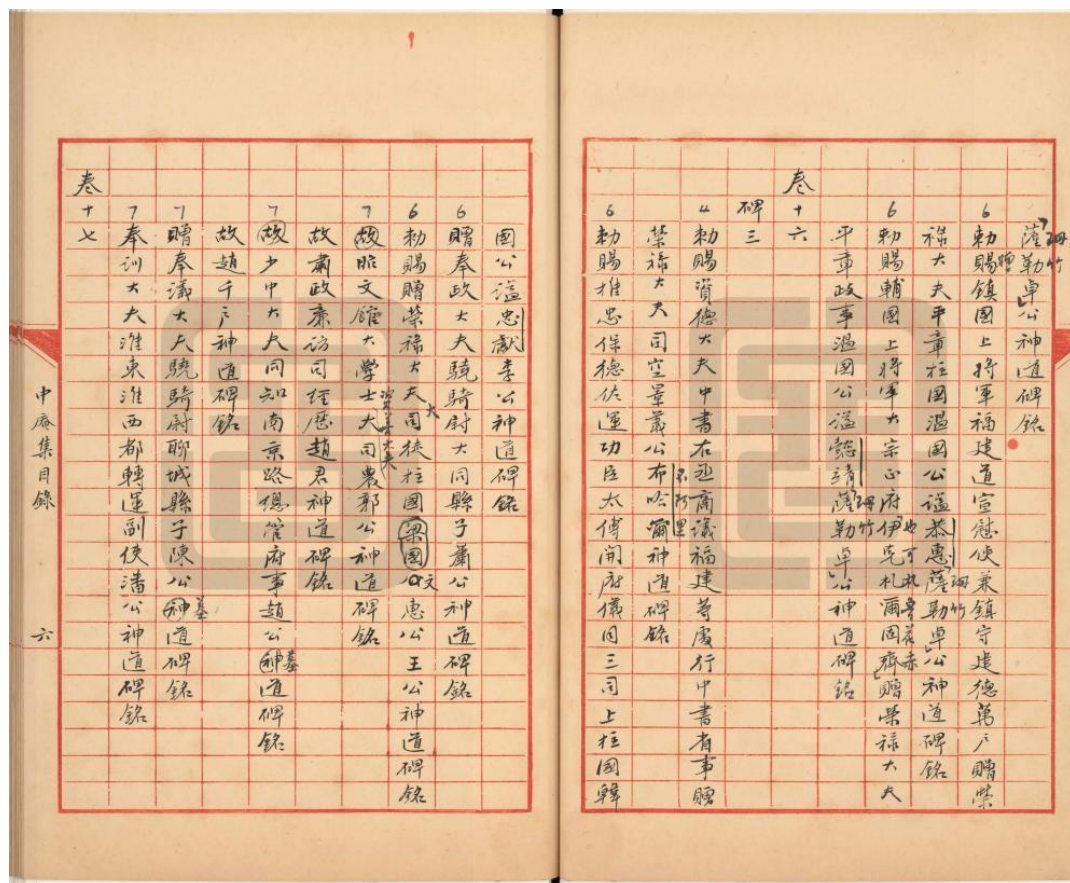 薩勒卓公神道碑銘
珊竹
6勅賜鎮國上將軍福建道宣慰使兼鎮守建德萬戶贈榮
贈
祿大夫平章柱國溫國公諡恭惠薩勒卓公神道碑銘
珊竹
6勅賜輔國上將軍大宗正府伊克札爾固齊贈榮祿大夫
也可札魯花赤
平章政事溫國公諡懿靖薩勒卓公神道碑銘
珊竹
卷十六
碑三
4勅賜資德大夫中書右丞商議福建等處行中書省事贈
榮祿大夫司空景義公布哈爾神道碑銘
6勅賜推忠保德佐運功臣太傅開府儀同三司上柱國韓
國公諡忠獻李公神道碑銘
6贈奉政大夫驍騎尉大同縣子蕭公神道碑銘
6勅賜贈榮祿大夫司徒柱國梁國公文惠公王公神道碑銘
大
7故昭文館大學士大司農郭公神道碑銘
故肅政廉訪司經歷趙君神道碑銘
7故少中大夫同知南京路總管府事趙公神道碑銘
墓
故趙千戶神道碑銘
7贈奉議大夫驍騎尉聊城縣子陳公神道碑銘
墓
7奉訓大夫淮東淮西都轉運副使潘公神道碑銘
卷十七
中庵集目錄
六